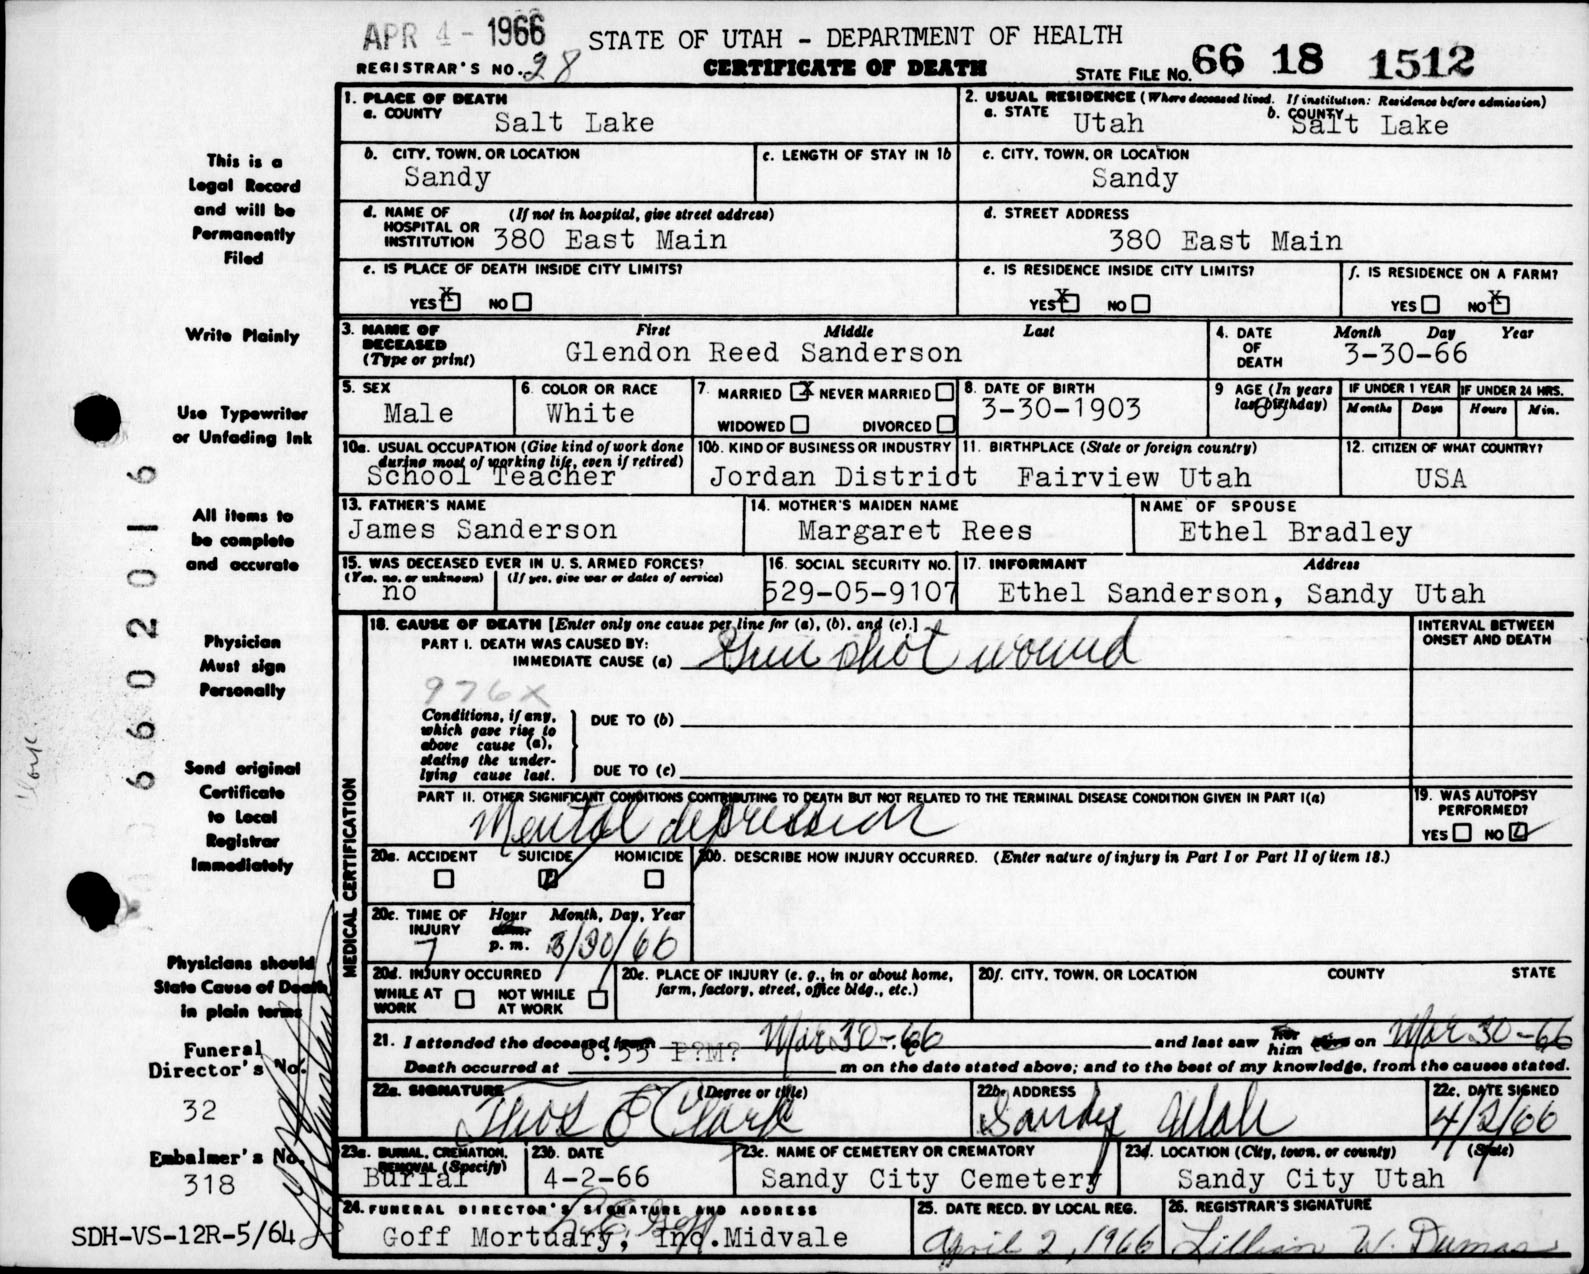 APR 4 - 1966 STATE OF UTAH - DEPARTMENT OF HEALTH
REGISTRAR'S NO. 28 CERTIFICATE OF DEATH STATE FILE NO. 66 18 1512
1. PLACE OF DEATH
a. COUNTY Salt Lake
2. USUAL RESIDENCE (Where deceased lived. If institution: Residence before admission)
a. STATE Utah b. COUNTY Salt Lake
b. CITY, TOWN, OR LOCATION Sandy
c. LENGTH OF STAY IN 1b
c. CITY, TOWN, OR LOCATION Sandy
d. NAME OF HOSPITAL OR INSTITUTION (If not in hospital, give street address) 380 East Main
d. STREET ADDRESS 380 East Main
e. IS PLACE OF DEATH INSIDE CITY LIMITS?
YES X NO
e. IS RESIDENCE INSIDE CITY LIMITS?
YES X NO
f. IS RESIDENCE ON A FARM?
YES NO X
3. NAME OF DECEASED (Type or print) First Middle Last
Glendon Reed Sanderson
4. DATE OF DEATH Month Day Year
3-30-66
5. SEX Male
6. COLOR OR RACE White
7. MARRIED X NEVER MARRIED
WIDOWED DIVORCED
8. DATE OF BIRTH 3-30-1903
9 AGE (In years last birthday) 63
IF UNDER 1 YEAR Months Days
IF UNDER 24 HRS. Hours Min.
10a. USUAL OCCUPATION (Give kind of work done during most of working life, even if retired)
School Teacher
10b. KIND OF BUSINESS OR INDUSTRY
Jordan District
11. BIRTHPLACE (State or foreign country)
Fairview Utah
12. CITIZEN OF WHAT COUNTRY?
USA
13. FATHER'S NAME
James Sanderson
14. MOTHER'S MAIDEN NAME
Margaret Rees
NAME OF SPOUSE
Ethel Bradley
15. WAS DECEASED EVER IN U. S. ARMED FORCES?
(Yes, no, or unknown) (If yes, give war or dates of service)
no
16. SOCIAL SECURITY NO.
529-05-9107
17. INFORMANT Address
Ethel Sanderson, Sandy Utah
MEDICAL CERTIFICATION
18. CAUSE OF DEATH [Enter only one cause per line for (a), (b), and (c).]
PART I. DEATH WAS CAUSED BY:
IMMEDIATE CAUSE (a) Gun shot wound
INTERVAL BETWEEN ONSET AND DEATH
976X
Conditions, if any, which gave rise to above cause (a), stating the underlying cause last.
DUE TO (b)
DUE TO (c)
PART II. OTHER SIGNIFICANT CONDITIONS CONTRIBUTING TO DEATH BUT NOT RELATED TO THE TERMINAL DISEASE CONDITION GIVEN IN PART I(a)
Mental depression
19. WAS AUTOPSY PERFORMED?
YES NO
20a. ACCIDENT SUICIDE HOMICIDE
20b. DESCRIBE HOW INJURY OCCURRED. (Enter nature of injury in Part I or Part II of item 18.)
20c. TIME OF INJURY Hour Month, Day, Year
7 a.m. p. m. 3/30/66
20d. INJURY OCCURRED
WHILE AT WORK NOT WHILE AT WORK
20e. PLACE OF INJURY (e. g., in or about home, farm, factory, street, office bldg., etc.)
20f. CITY, TOWN, OR LOCATION COUNTY STATE
21. I attended the deceased from Mar 30-66 and last saw her him alive on Mar 30-66
Death occurred at 6:55 P?M? m on the date stated above; and to the best of my knowledge, from the causes stated.
22a. SIGNATURE (Degree or title)
Thos E Clark
22b. ADDRESS
Sandy Utah
22c. DATE SIGNED
4/2/66
23a. BURIAL, CREMATION, REMOVAL (Specify)
Burial
23b. DATE
4-2-66
23c. NAME OF CEMETERY OR CREMATORY
Sandy City Cemetery
23d. LOCATION (City, town, or county) (State)
Sandy City Utah
24. FUNERAL DIRECTOR'S SIGNATURE AND ADDRESS
Goff Mortuary, Inc. Midvale
25. DATE RECD. BY LOCAL REG.
April 2, 1966
26. REGISTRAR'S SIGNATURE
Lillian W. Dumas
This is a
Legal Record
and will be
Permanently
Filed
Write Plainly
Use Typewriter
or Unfading Ink
All items to
be complete
and accurate
Physician
Must sign
Personally
Send original
Certificate
to Local
Registrar
Immediately
Physicians should
State Cause of Death
in plain terms
Funeral
Director's No.
32
Embalmer's No.
318
SDH-VS-12R-5/64
6602016